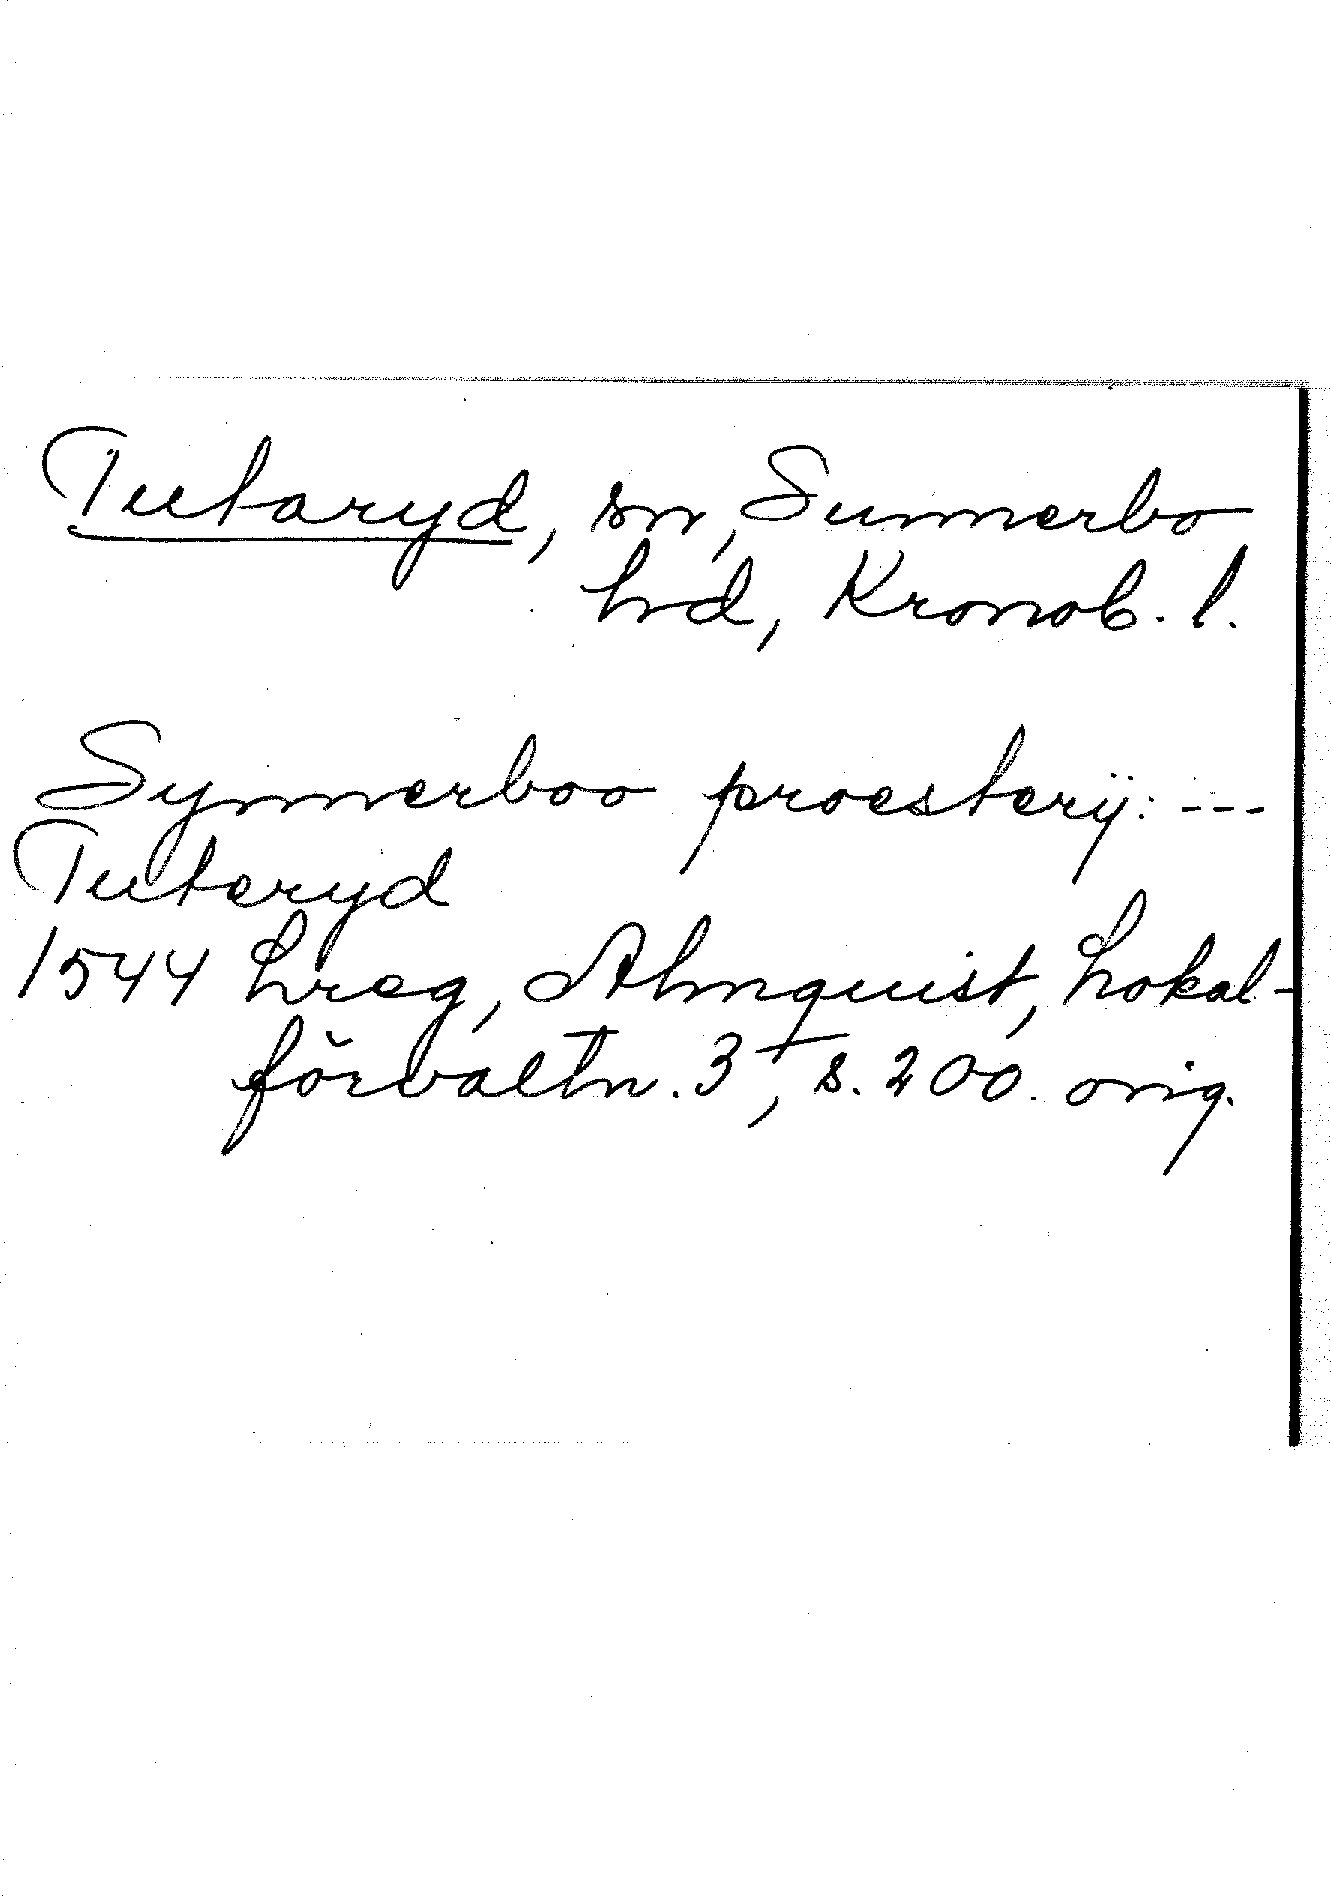 Tutaryd, sn, Sunnerbo
hd, Kronob. l.
Synnerboo proesterij: ---
Tuteryd
1544 Lreg, Almquist, Lokal-
förvaltn. 3, s. 200. orig.